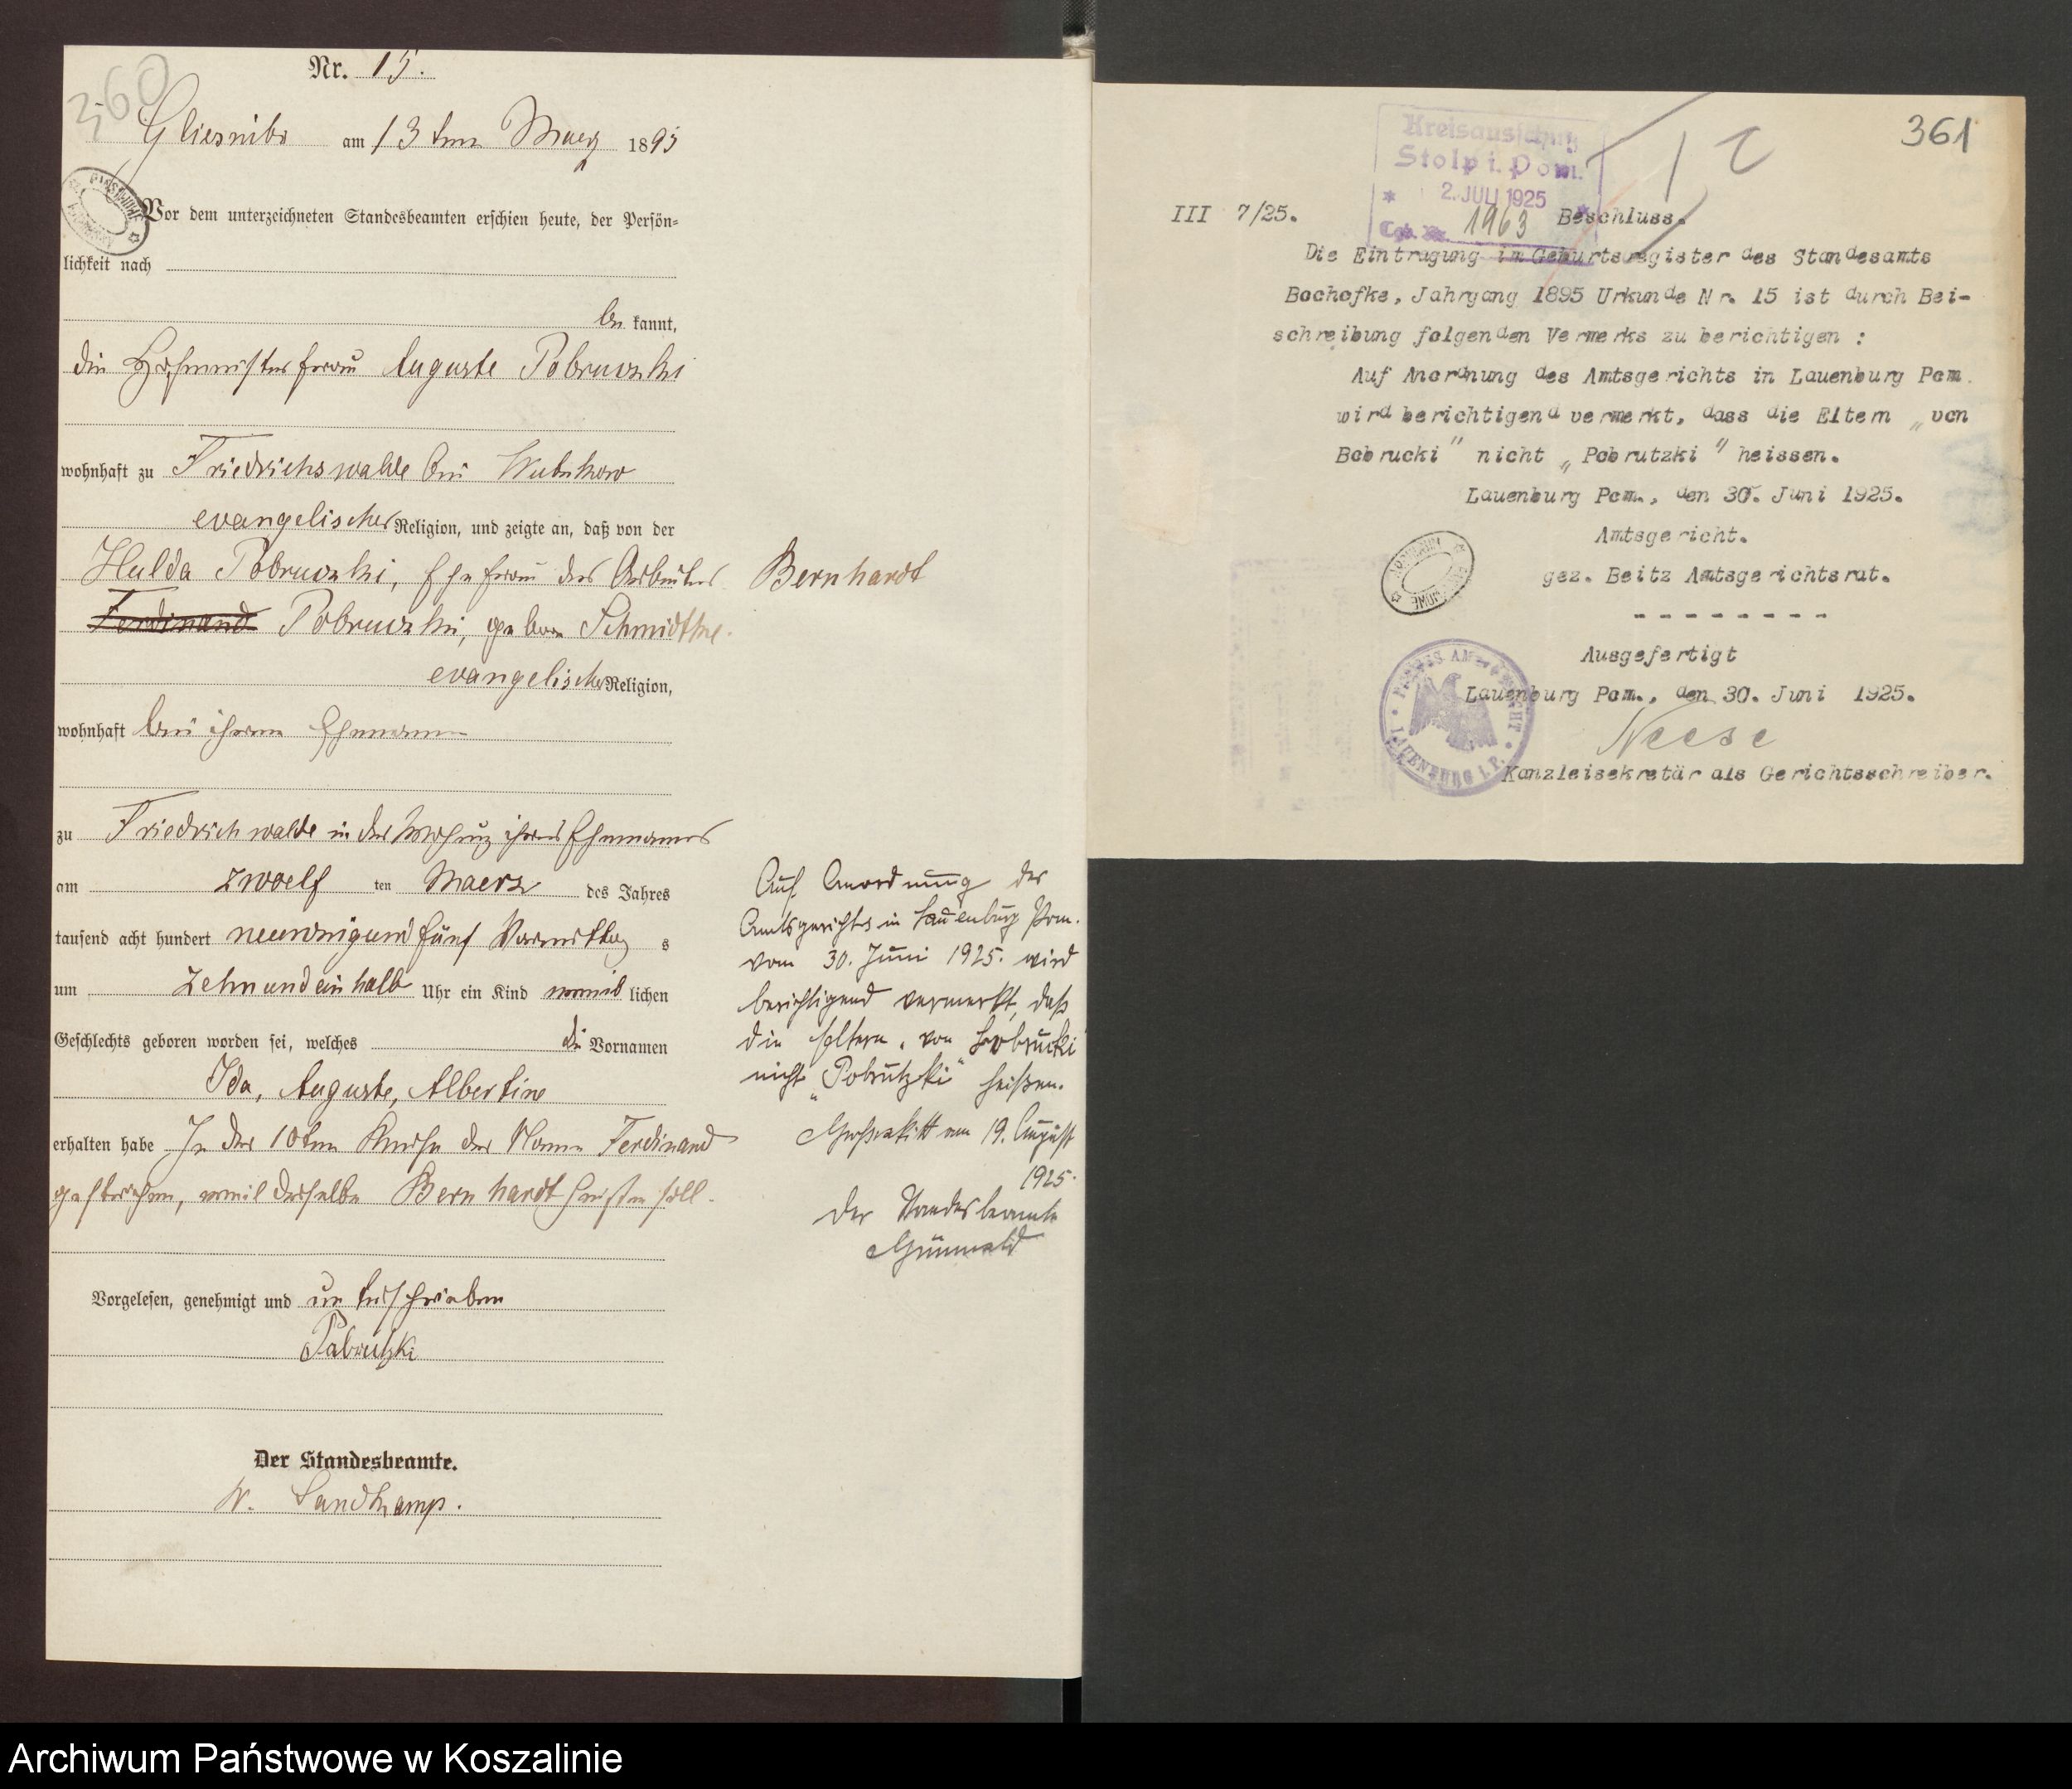 360
Nr. 15.
Gliesnitz am 13ten Maerz 1895
Vor dem unterzeichneten Standesbeamten erschien heute, der Persön-
lichkeit nach
be kannt,
die Hofmeisterfrau Auguste Pobruzki
wohnhaft zu Friedrichswalde bei Wutzkow
evangelischer Religion, und zeigte an, daß von der
Hulda Pobruzki, Ehefrau des Arbeiters Bernhardt
Ferdinand Pobruzki, geboren Schmidtke.
evangelischer Religion,
wohnhaft bei ihrem Ehemann
zu Friedrichwalde in der Wohnung ihres Ehemannes
am zwoelf ten Maerz des Jahres
tausend acht hundert neunzigund fünf Vormittag s
um zehn und ein halb Uhr ein Kind weib lichen
Geschlechts geboren worden sei, welches die Vornamen
Ida, Auguste, Albertine
erhalten habe In der 10ten Reihe der Name Ferdinand
gestrichen, weil derselbe Bernhardt heißen soll.
Vorgelesen, genehmigt und unterschrieben
Pabrutzki
Der Standesbeamte.
W. Sandkamp.
Auf Anordnung des
Amtsgerichts in Lauenburg Pom.
vom 30. Juni 1925. wird
berichtigend vermerkt, daß
die Eltern „von Bobrucki
nicht „Pobrutzki“ heißen.
am 19. August
1925.
Der Standesbeamte
Grünwald
361
Kreisausschuß
Stolp i. Pom.
* 2. JULI 1925 *
Tgb. Nr. 1963
III 7/25. Beschluss.
Die Eintragung im Geburtsregister des Standesamts
Bochofke, Jahrgang 1895 Urkunde Nr. 15 ist durch Bei-
schreibung folgenden Vermerks zu berichtigen :
Auf Anordnung des Amtsgerichts in Lauenburg Pom.
wird berichtigend vermerkt, dass die Eltern „von
Bobrucki“ nicht „Pobrutzki“ heissen.
Lauenburg Pom., den 30. Juni 1925.
Amtsgericht.
gez. Beitz Amtsgerichtsrat.
- - - - - - - -
Ausgefertigt
Lauenburg Pom., den 30. Juni 1925.
Neese
Kanzleisekretär als Gerichtsschreiber.
LAUENBURG i. P.
Archiwum Państwowe w Koszalinie